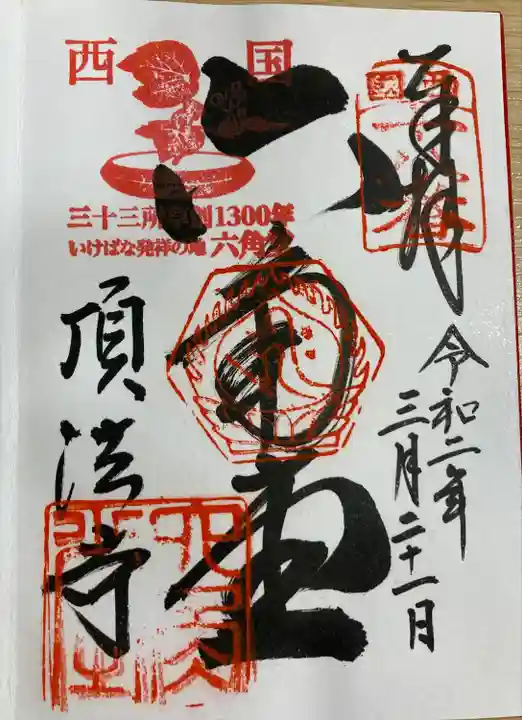 奉拝
令和二年
三月二十一日
六角堂
頂法寺
西国
三十三所草創1300年
いけばな発祥の地 六角堂